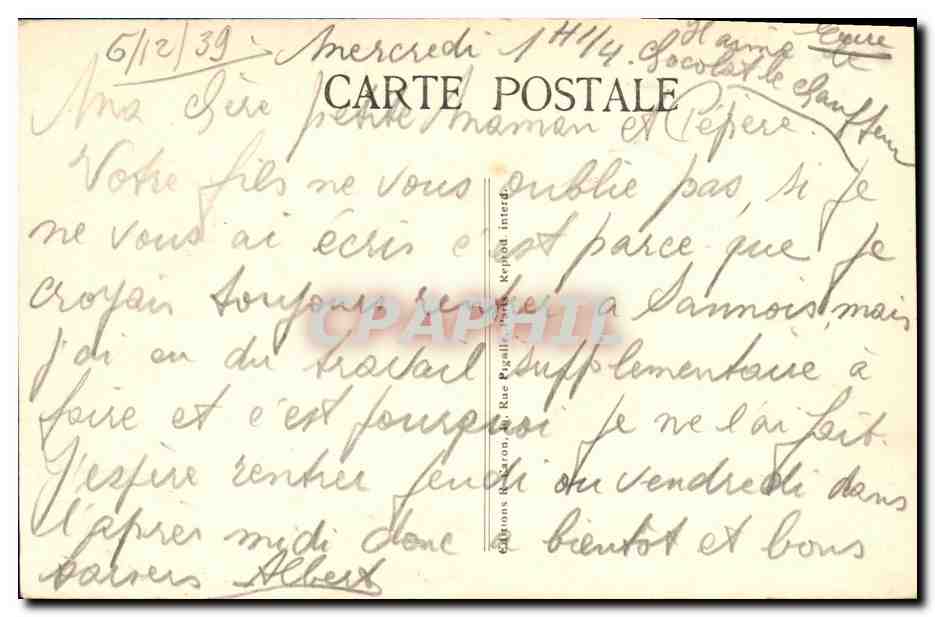 6/12/39 Mercredi 1H 1/4.
Chocolat le chauffeur
CARTE POSTALE
Ma chère petite Maman et Pépère.
Votre fils ne vous oublie pas, si je
ne vous ai écris c'est parce que je
croyais toujours rentrer a Sannois, mais
j'ai eu du travail supplementaire à
faire et c'est pourquoi je ne l'ai fait.
J'espère rentrer jeudi ou vendredi dans
l'après midi donc a bientôt et bons
baisers Albert
Rue Pigalle, Paris. Reprod. interd.
CPAPHIL